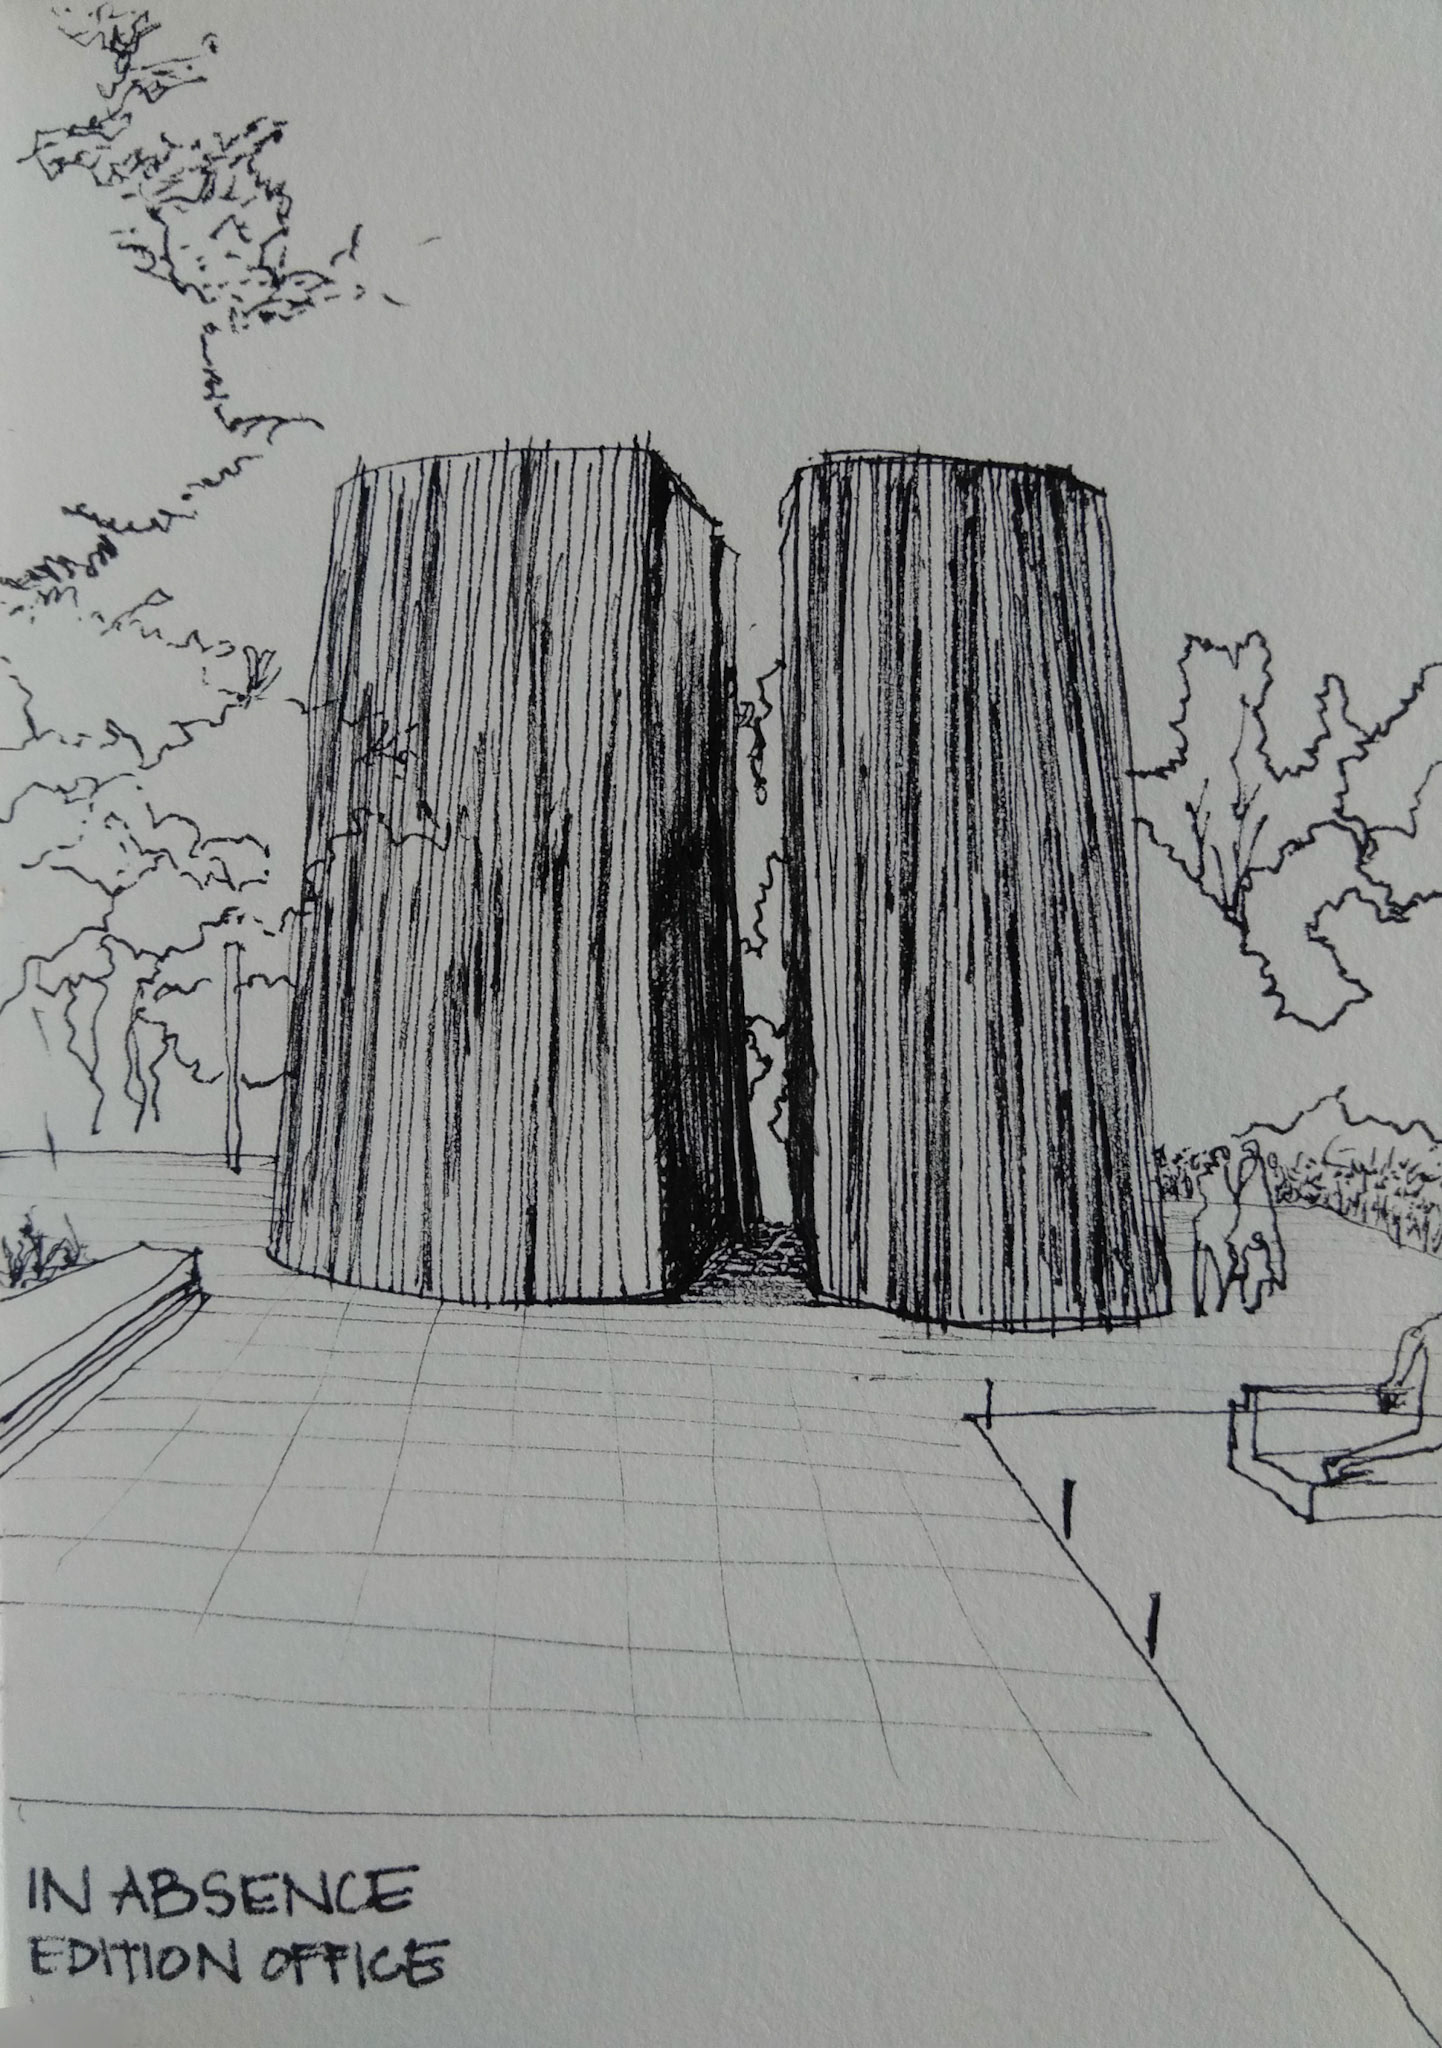 IN ABSENCE
EDITION OFFICE